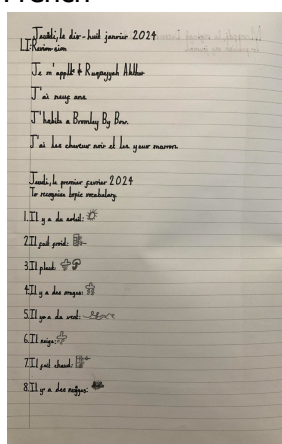 French
Jeudi, le dix-huit janvier 2024
LI: Revision
Je m'applle Ruqayyah Akther
J'ai neuf ans.
J'habite a Bromley By Bow.
J'ai les cheveux noir et les yeux marron.
Jeudi, le premier fevrier 2024
To recognise topic vocabulary
1. Il y a du soleil:
2. Il fait froid:
3. Il pleut:
4. Il y a des nuages:
5. Il y a du vent:
6. Il neige:
7. Il fait chaud:
8. Il y a des